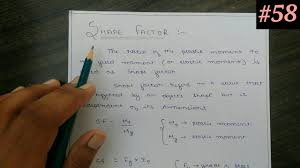 #58
SHAPE FACTOR :-
The ratio of the plastic moment to
yield moment (or elastic moment) is
as shape factor
Shape factor is a value that
by an shape but is
independent of its dimensions
SF = Mp
My
Mp → plastic moment
My → elastic moment
SF =